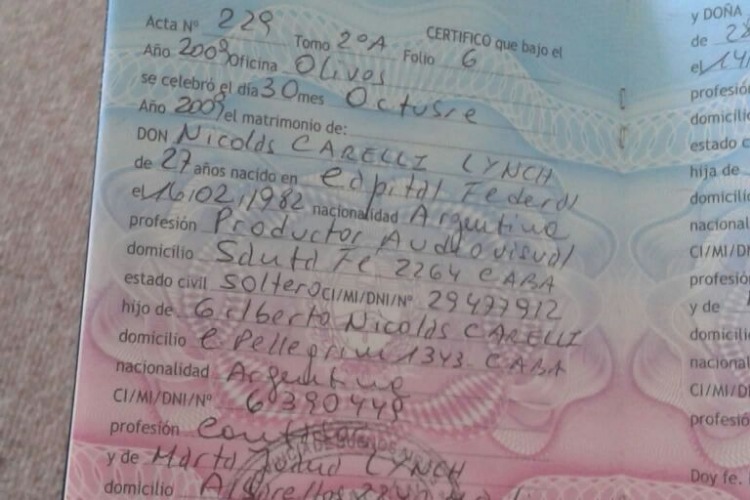 Acta Nº 229 Tomo 2ºA CERTIFICO que bajo el
Año 2009 Oficina Olivos Folio 6
se celebró el día 30 mes Octubre
Año 2009 el matrimonio de:
DON Nicolás CARELLI LYNCH
de 27 años nacido en Capital Federal
el 16/02/1982 nacionalidad Argentina
profesión Productor Audiovisual
domicilio Santa Fe 2264 CABA
estado civil soltero CI/MI/DNI/Nº 29477912
hijo de Gilberto Nicolás CARELLI
domicilio C Pellegrini 1343 CABA
nacionalidad Argentina
CI/MI/DNI/Nº 6390448
profesión
y de Marta LYNCH
domicilio
y DOÑA
de 28
el
profesió
domicilio
estado c
hija de
domicilio
nacional
CI/MI/DN
profesió
y de
domicili
nacional
CI/MI/D
profesió
Doy fe.